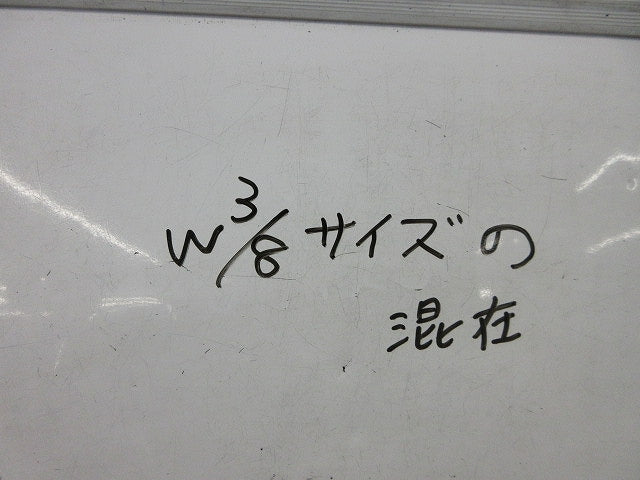 W3/8サイズの
混在